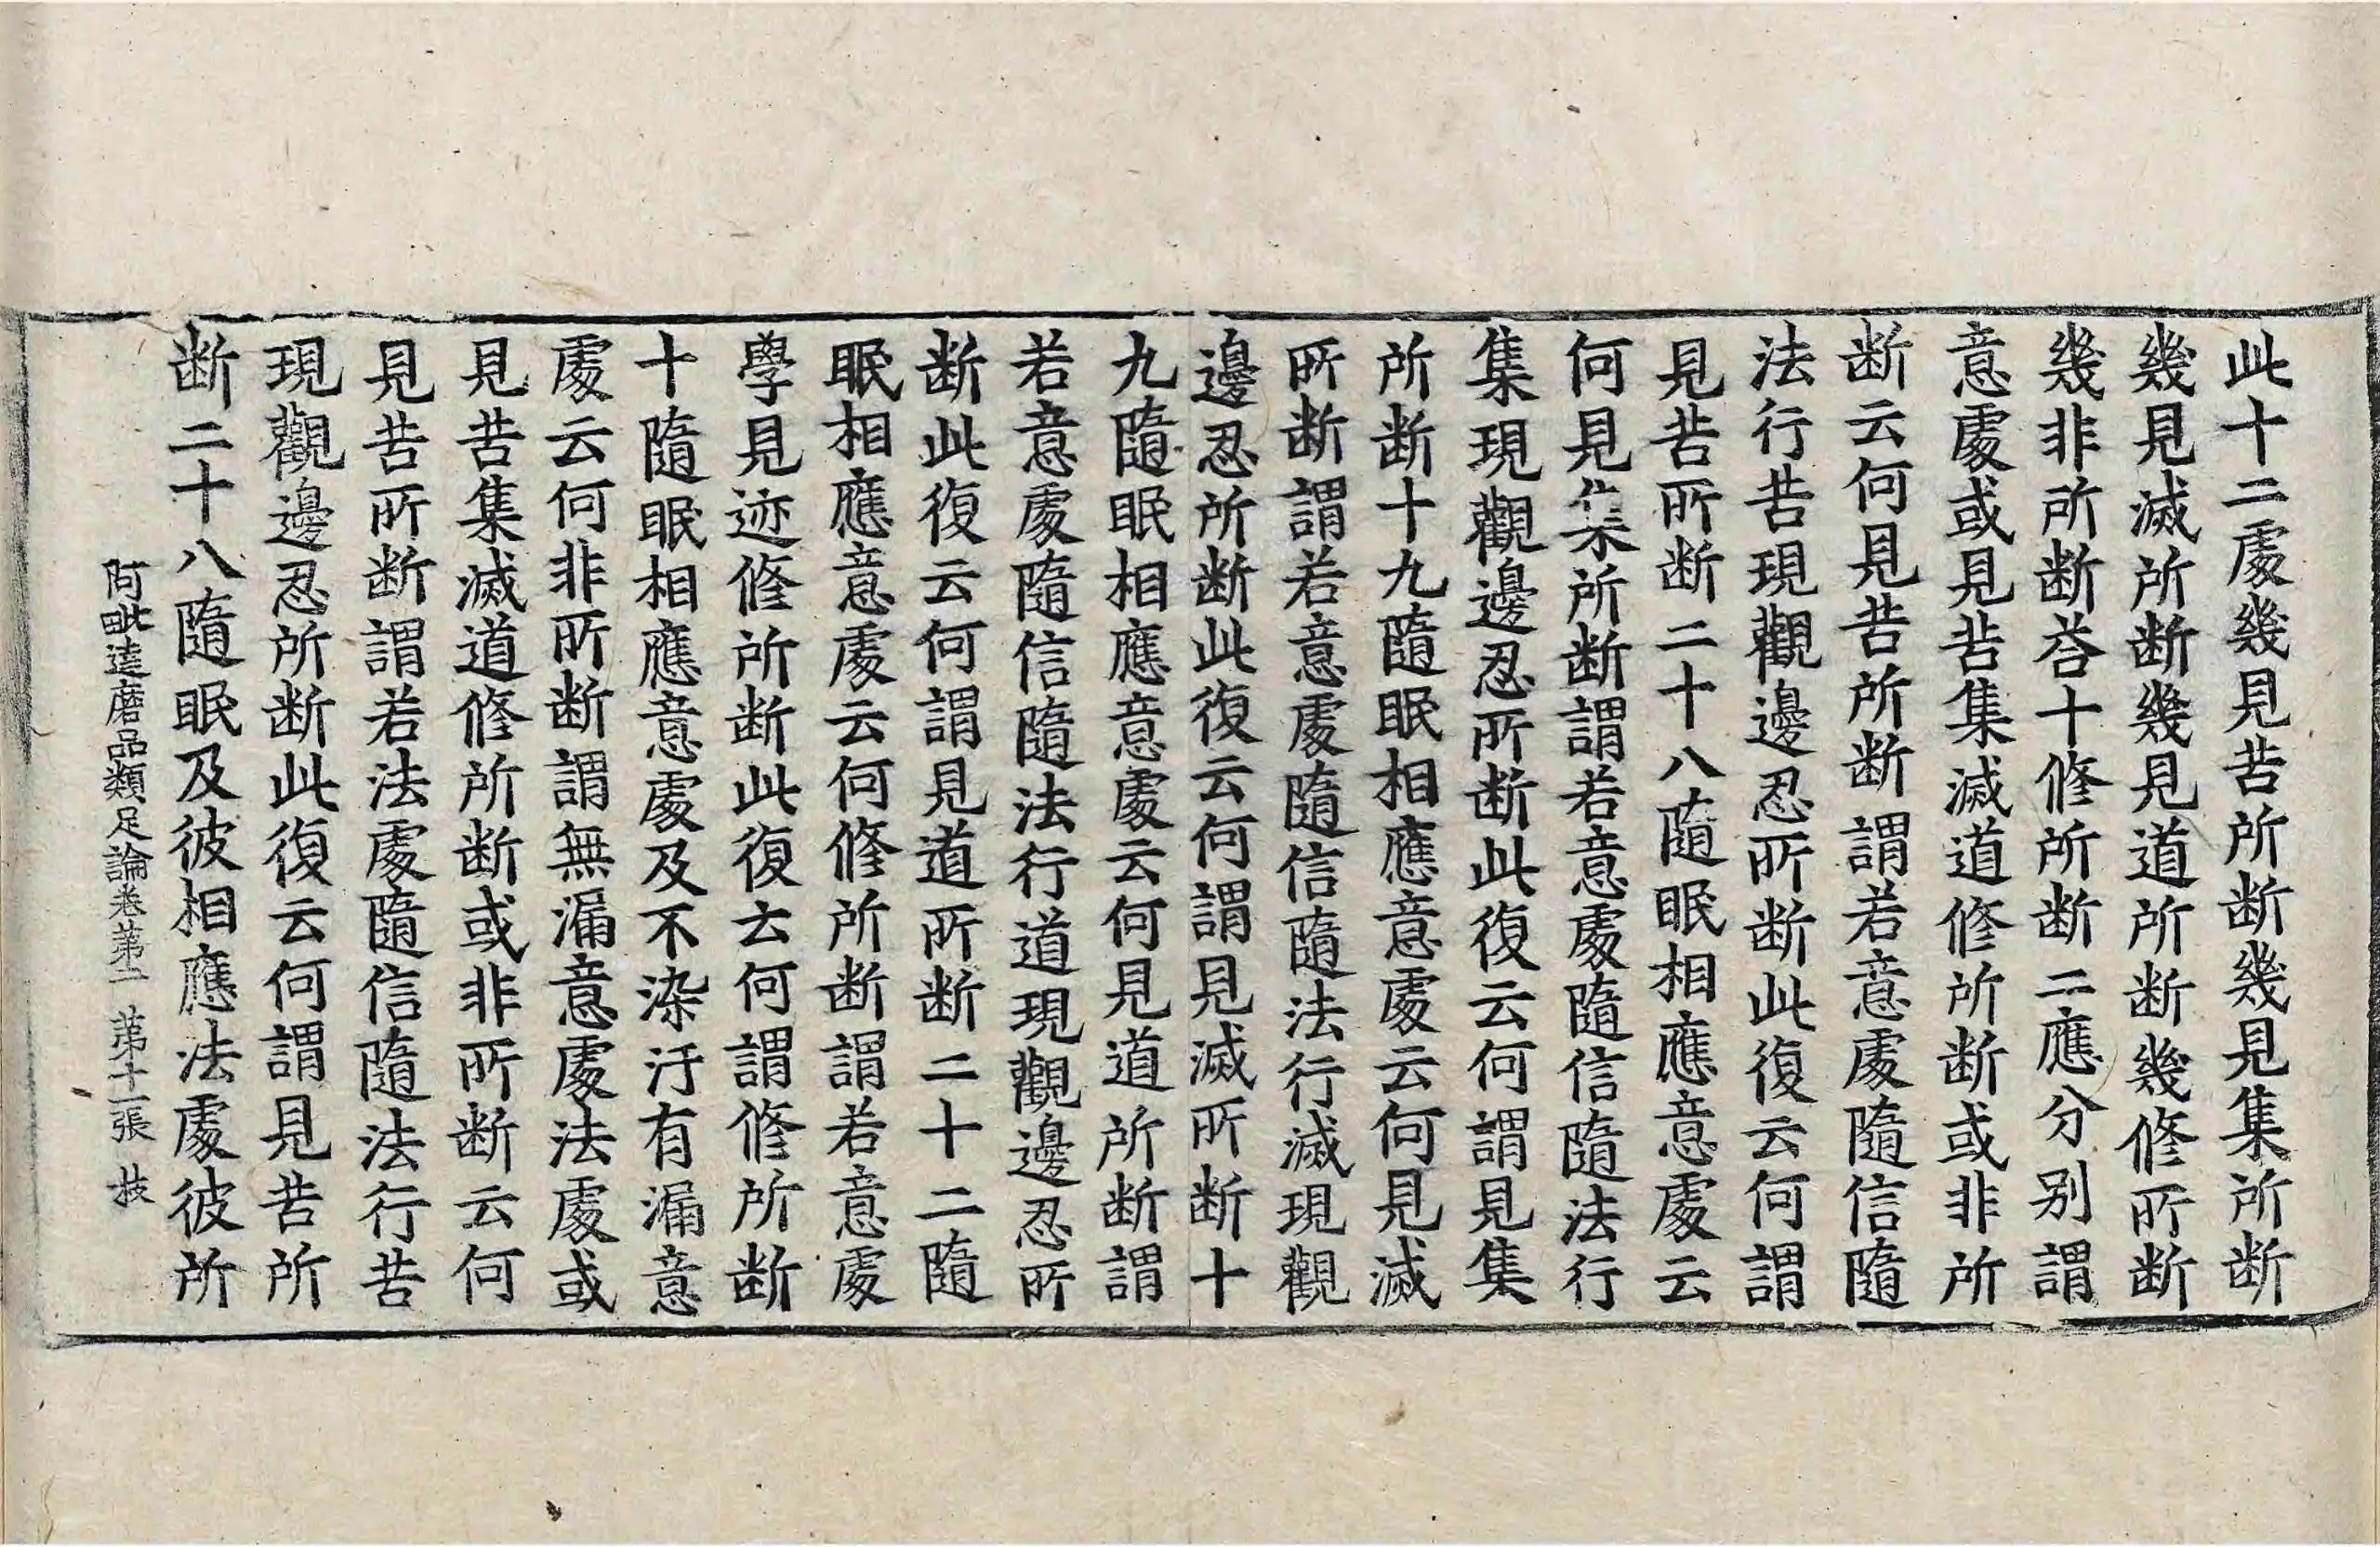 此十二處幾見苦所断幾見集所断
幾見滅所断幾見道所断幾修所断
幾非所断荅十修所断二應分别謂
意處或見苦集滅道修所断或非所
断云何見苦所断謂若意處隨信隨
法行苦現觀邊忍所断此復云何謂
見苦所断二十八隨眠相應意處云
何見集所断謂若意處隨信隨法行
集現觀邊忍所断此復云何謂見集
所断十九隨眠相應意處云何見滅
所断謂若意處隨信隨法行滅現觀
邊忍所断此復云何謂見滅所断十
九隨眠相應意處云何見道所断謂
若意處隨信隨法行道現觀邊忍所
断此復云何謂見道所断二十二隨
眠相應意處云何修所断謂若意處
學見迹修所断此復云何謂修所断
十隨眠相應意處及不染汙有漏意
處云何非所断謂無漏意處法處或
見苦集滅道修所断或非所断云何
見苦所断謂若法處隨信隨法行苦
現觀邊忍所断此復云何謂見苦所
断二十八隨眠及彼相應法處彼所
阿毗達磨品類足論卷第二 第十一張 枝